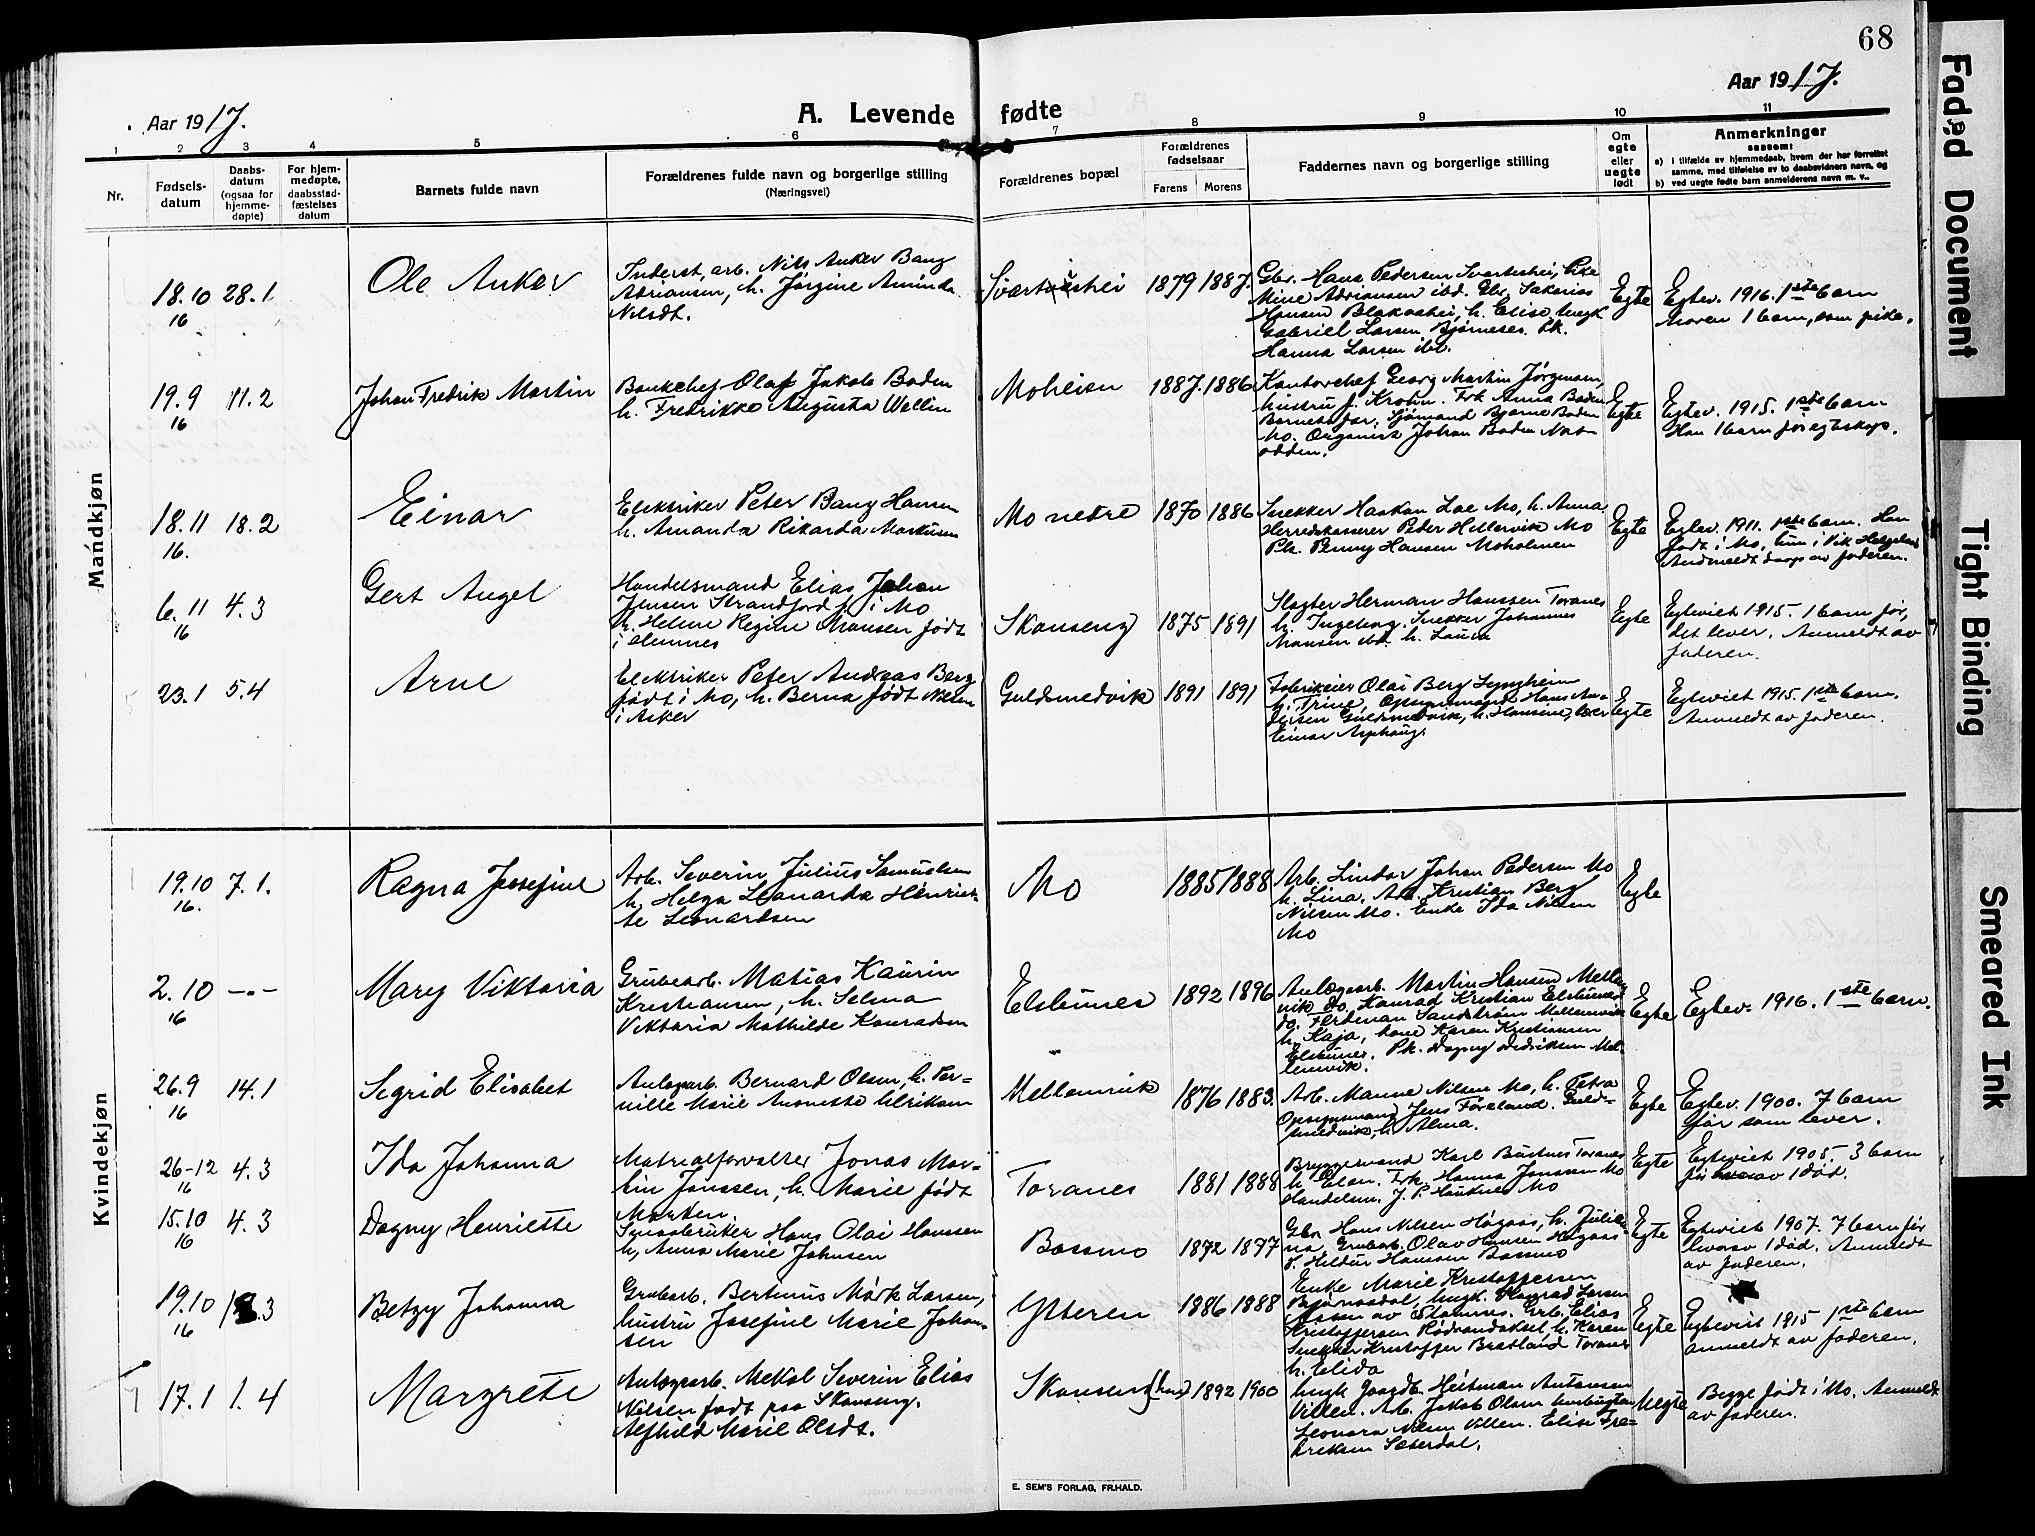 68
Aar 1917.
A. Levende fødte
Aar 1917.
1 2 3 4 5 6 7 8 9 10 11
Nr.
Fødsels-
datum
Daabs-
datum
(ogsaa for
hjemme-
døpte)
For hjem-
medøpte,
daabsstad-
fæstelses
datum
Barnets fulde navn
Forældrenes fulde navn og borgerlige stilling
(Næringsvei)
Forældrenes bopæl
Forældrenes
fødselsaar
Farens Morens
Faddernes navn og borgerlige stilling
Om
egte
eller
uegte
født
Anmerkninger
saasom:
a) i tilfælde av hjemmedaab, hvem der har forrettet
samme, med tilføielse av to daabsvidners navn, og
b) ved uegte fødte barn anmelderens navn m. v.
Mandkjøn
18.10 28.1
16
Ole Anker
Inderst, arb. Nils Anker Bang
Adriansen, h. Jørgine Aminda
Nilsdt.
Svartishei
1879 1887.
Gbr. Hans Pedersen Svartishei, Pike
Mine Adriansen ibd. Gbr. Sakarias
Hansen Blakaahei, h. Elise Ungk
Gabriel Larsen Bjørnes. Pk.
Hanna Larsen ibd.
Egte
Egtev. 1916. 1ste barn
Moren 1 barn, som pike.
19.9 11.2
16
Johan Fredrik Martin
Bankchef Olaf Jakob Boden
h. Fredrikke Augusta Wellen
Moheien
1887. 1886
Kontorchef Georg Martin Jørgensen,
hustru f. Krohn. Frk Anna Boden
Barnets far. Sjømand Bjarne Boden
Mo. Organist Johan Boden Not-
odden.
Egte
Egtev. 1915. 1ste barn
Han 1 barn før egteskap.
18.11 18.2
16.
Einar
Elektriker Peter Bang Hansen
h. Amanda Rikarda Markusen
Mo nedre
1870 1886
Snekker Haakon Loe Mo, h. Anna
Herredskasserer Peder Hellervik Mo
Pk. Penny Hansen Moholmen
Egte
Egtev. 1911. 1ste barn. Han
født i Mo, hun i Vik Helgeland
Anmeldt daap av faderen.
6.11 4.3
16
Gert Angel
Handelsmand Elias Johan
Jensen Strandjord f. i Mo
h. Helene Regine Hansen født
i Hemnes
Skonseng
1875 1891
Slagter Herman Hanssen Toranes
h. Ingeborg. Snekker Johannes
Hansen ibd. h. Laura
Egte
Egteviet 1915. 1 barn før,
det lever. Anmeldt av
faderen.
23.1 5.4
Arne
Elektriker Peter Andreas Berg
født i Mo, h. Berna født Nilsen
i Asker
Guldsmedvik
1891 1891
Fabrikeier Olai Berg Lyngheim
h. Trine, Opsynsmand Hans An-
dersen Guldsmedvik, h. Hansine, lærer
Einar Asphaug.
Egte
Egteviet 1915. 1ste barn.
Anmeldt av faderen.
Kvindekjøn
19.10 7.1.
16.
Ragna Josefine
Arb. Severin Julius Samuelsen
h. Helga Leonarda Henriet-
te Leonardsen
Mo
1885 1888
Arb. Lindor Johan Pedersen Mo
h. Lina. Arb. Kristian Berg
Nilsen Mo. Enke Ida Nilsen
Mo
Egte
2.10 -"-
16
Mary Viktoria
Grubearb. Matias Kaurin
Kristiansen, h. Selma
Viktoria Mathilde Konradsen
Elsbunes
1892 1896
Anlægsarb. Martin Hansen Mellem-
vik do. Konrad Kristian Elsbunes
do. Ferdinan Sandstrøm Mellemvik
h. Kaja, kone Karen Kristiansen
Elsbunes. Pk. Dagny Didriksen Mel-
lemvik.
Egte
Egtev. 1916. 1ste barn.
26.9 14.1
16
Sigrid Elisabet
Anlægsarb. Bernard Olsen, h. Per-
nille Marie Anonette Ulriksen
Mellemvik
1876 1883.
Arb. Manne Nilsen Mo, h. Petra
Opsynsmand Jens Føreland. Guld-
smedvik, h. Alma.
Egte
Egtev. 1900. 7 barn
før som lever.
26-12 4.3
16
Ida Johanna
Matrialforvalter Jonas Mar-
tin Janssen, h. Marie født
Morten.
Toranes
1881 1888
Bryggemand Karl Bustnes Toranes
h. Ellen. Frk. Hanna Janssen Mo
Handelsm. J. P. Hauknes Mo
Egte
Egteviet 1905. 3 barn
før hvorav 1 død.
15.10 4.3
16
Dagny Henriette
Smaabruker Hans Olai Hanssen
h. Anna Marie Johnsen
Bossmo
1872 1877
Gbr. Hans Nilsen Høgaas, h. Julia-
na, Grubearb. Olav Hansen Høgaas
F. Hildur Hansen Bossmo
Egte
Egteviet 1907. 7 barn før
hvorav 1 død. Anmeldt
av faderen.
19.10 18.3
16
Betzy Johanna
Grubearb. Bertinus Mørk Larsen,
hustru Josefine Marie Johan-
sen
Ytteren
1886 1888
Enke Marie Kristoffersen
Bjørnaadal, Ungk. Konrad Larsen
Aasen av Hemnes. Grb. Elias
Kristoffersen Rødvandsket, h. Karen
Snekker Kristoffer Bratland Toranes
h. Elida
Egte
Egteviet 1915 1ste barn
anmeldt av faderen.
17.1 1.4
Margrete
Anlægsarb. Mekal Severin Elias
Nilsen født paa Skonseng.
Alfhild Marie Olsdt.
Skonseng (hans)
1892 1900
Ungk Gaardb. Heitman Antonsen
Villen. Arb. Jakob Olsen
Leonora Nilsen Villen. Elise Fre-
driksen Sæterdal.
Uegte
Begge født i Mo. Anmeldt
av faderen.
E. SEM'S FORLAG, FR.HALD.
Faded Document
Tight Binding
Smeared Ink